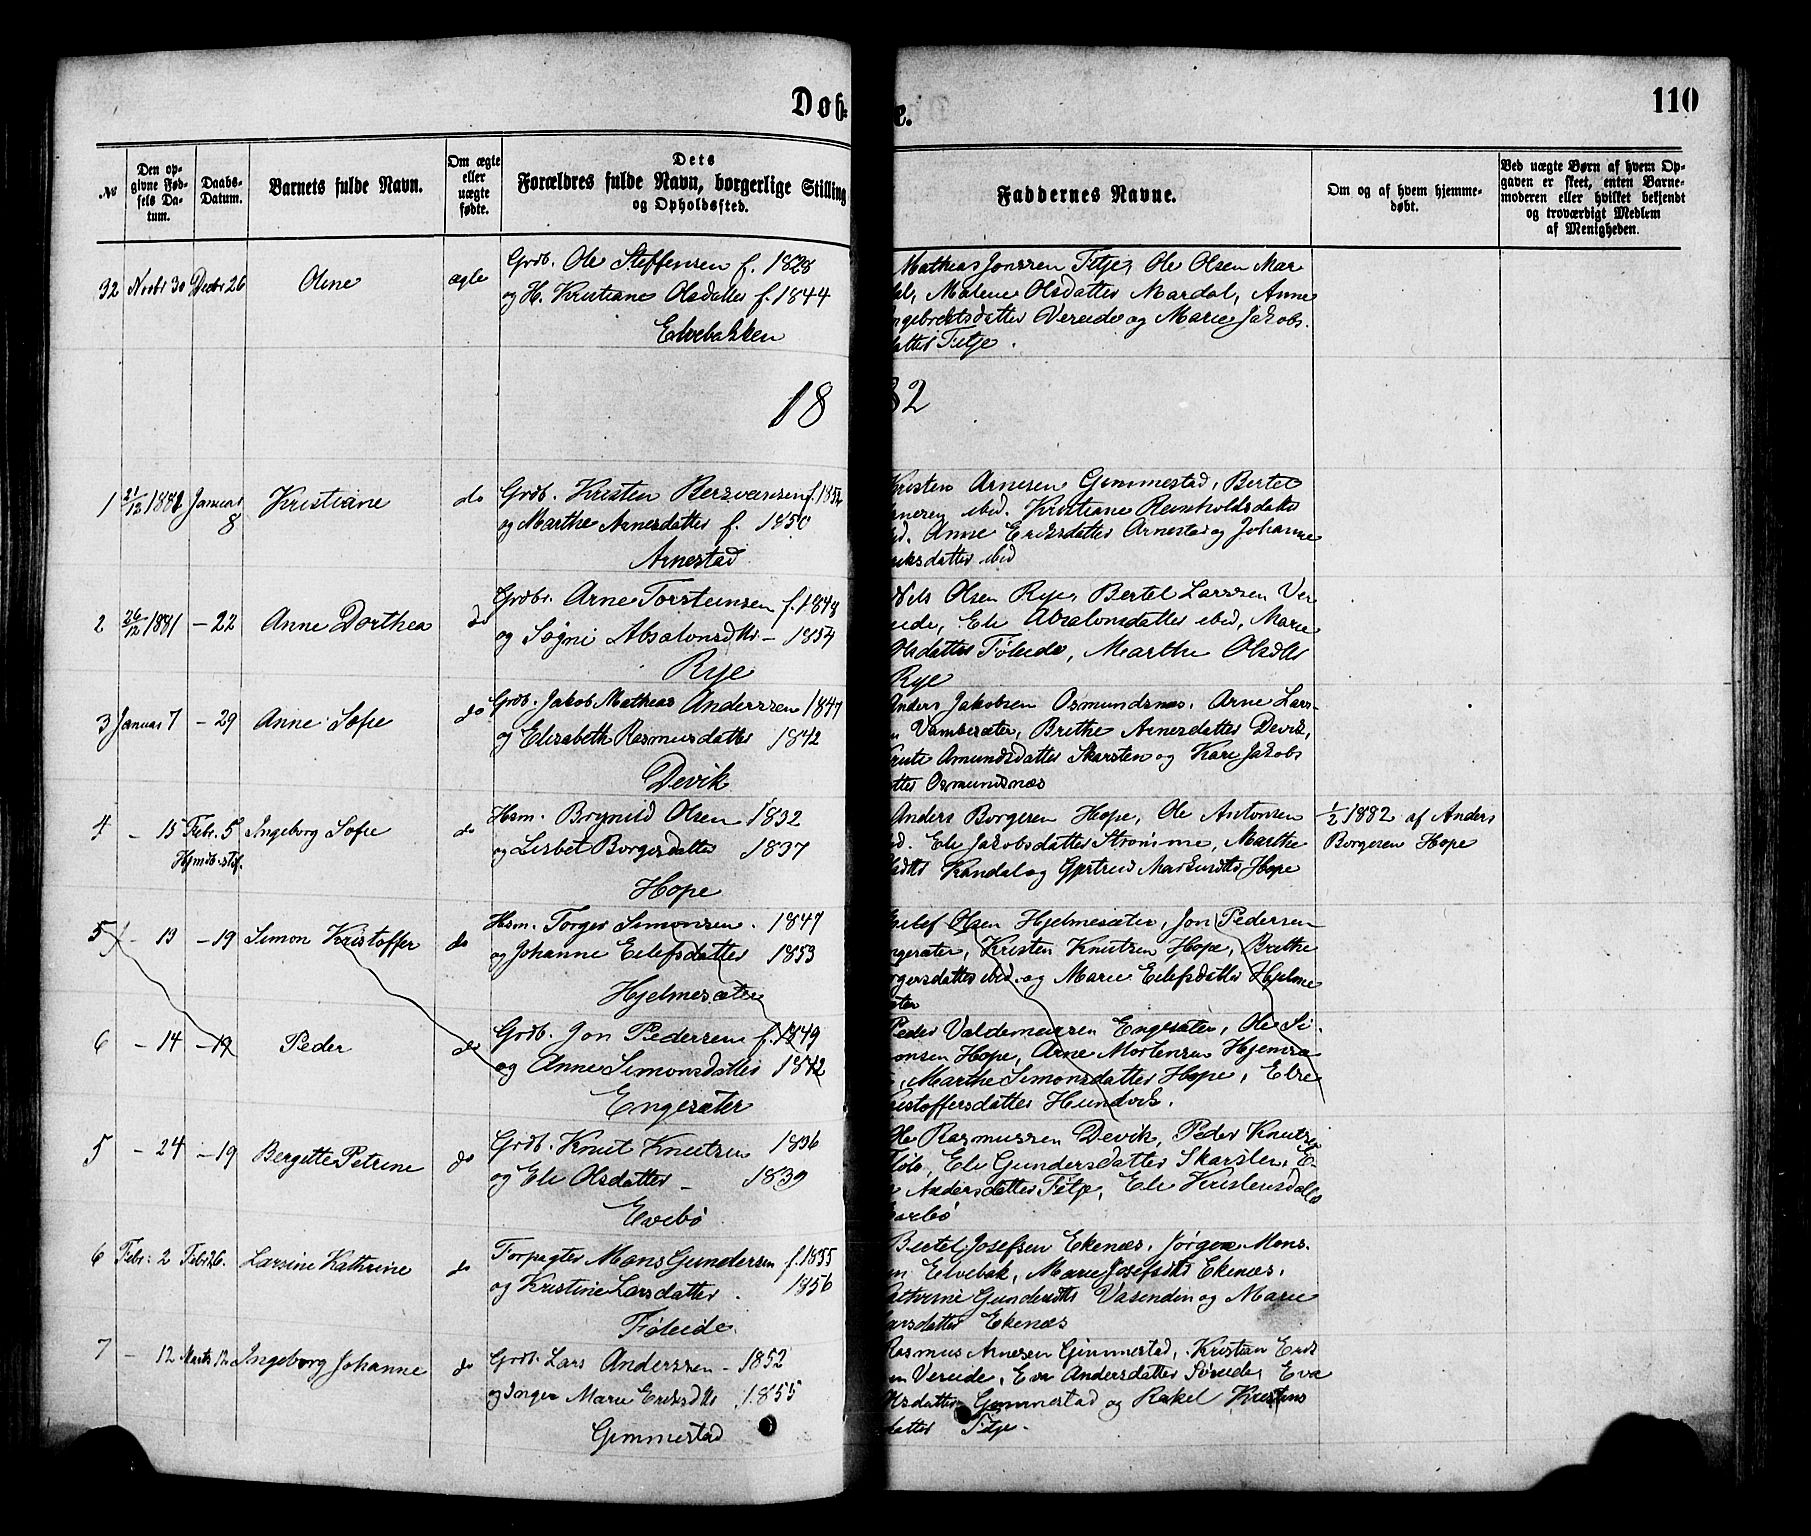 Døb- e. 110
No
Den op-
givne Fød-
sels Da-
tum.
Daabs-
Datum.
Barnets fulde Navn.
Om ægte
eller
uægte
fødte.
Dets
Forældres fulde Navn, borgerlige Stilling
og Opholdssted.
Faddernes Navne.
Om og af hvem hjemme-
døbt.
Ved uægte Børn af hvem Op-
gaven er skeet, enten Barne-
moderen eller hvilket bekjendt
og troværdigt Medlem
af Menigheden.
32 Novbr 30 Decbr 26 Oline ægte
Grdb. Ole Steffensen f. 1828
og H. Kristiane Olsdatter f. 1844
Elvebakken
Mathias Jonssen Fitje, Ole Olsen Mar
dal, Malene Olsdatter Mardal, Anne
ngebrektsdatter Vereide og Marie Jakobs.
datter Fitje.
18 82
1 31/12 1881 Januar 8 Kristiane do
Grdb. Kristen Bersvensen f. 1852
og Marthe Arnesdatter f. 1850
Arnestad
Kristen Arnesen Gimmestad, Bertel
ibid. Kristiane Reinholdsdatter
Anne Eriksdatter Arnestad og Johanne
riksdatter ibid
2 26/12 1881 – 22 Anne Dorthea do
Grdbr. Arne Torsteinsen f. 1848
og Søgni Absalonsdtr – 1854
Rye
Nels Olsen Rye, Bertel Larssen Ver
eide, Eli Absalonsdatter ibid, Marie
Olsdatter Føleide, Marthe Olsdtr
Rye
3 Januar 7 – 29 Anne Sofie do
Grdb. Jakob Mathias Anderssen 1847
og Elisabeth Rasmusdatter 1842
Devik
Anders Jakobsen Osmundsnæs, Arne Lars-
n Vambesæter, Brithe Arnesdatter Devik,
Amundsdatter Skarsten og Kari Jakobs
atter Osmundsnæs
4 – 15 Febr. 5 Ingeborg Sofie do
Hjmdb. stf.
Hsm. Brynild Olsen 1832
og Lisbet Borgersdatter 1837
Hope
Anders Borgersen Hope, Ole Antonsen
Eli Jakobsdatter Strømme, Marthe
Kandal og Gjertrud Markusdtr Hope
1/2 1882 af Anders
Borgersen Hope
5 – 13 – 19 Simon Kristoffer do
Hsm. Torger Simonsen. 1847
og Johanne Eilefsdatter 1853
Hjelmesæter
Eilef Olsen Hjelmesæter, Jon Pedersen
ngesæter, Kristen Knutsen Hope, Brithe
orgersdatter ibid. og Marie Eilefsdatter Hjelme
æter
6 – 14 – 19 Peder do
Grdb. Jon Pedersen f. 1849
og Anne Simonsdatter 1842
Engesæter
Peder Valdemarsen Engesæter, Ole Si-
onsen Hope, Arne Mortensen Hjemsæ
, Marthe Simonsdatter Hope, Else
ristoffersdatter Hundvik.
5 – 24 – 19 Bergitte Petrine do
Grdb. Knut Knutsen 1836
og Eli Olsdatter – 1839
Evebø
Ole Rasmussen Devik, Peder Knutsen
Fløtо, Eli Gundersdatter Skarsten, E-
Andersdatter Fitje, Eli Kristensdatter
arbø
6 Febr. 2 Febr 26. Larsine Kathrine do
Forpagter Mons Gundersen f. 1855
og Kristine Larsdatter. 1856
Føleide
Bertel Josefsen Ekenæs, Jørgen Mons-
en Elvebak, Marie Josefsdtr Ekenæs,
athrine Gundersdtr Vasenden og Marie
arsdatter Ekenæs
7 – 12 Marts 12 Ingeborg Johanne do
Grdb. Lars Anderssen – 1852
og Inger Marie Eriksdtr f. 1855
Gimmestad
Rasmus Arnesen Gimmestad, Kristian Erik
en Vereide, Eva Andersdatter Søreide, Eva
Olsdatter Gimmestad og Rakel Kristens
datter Fitje.